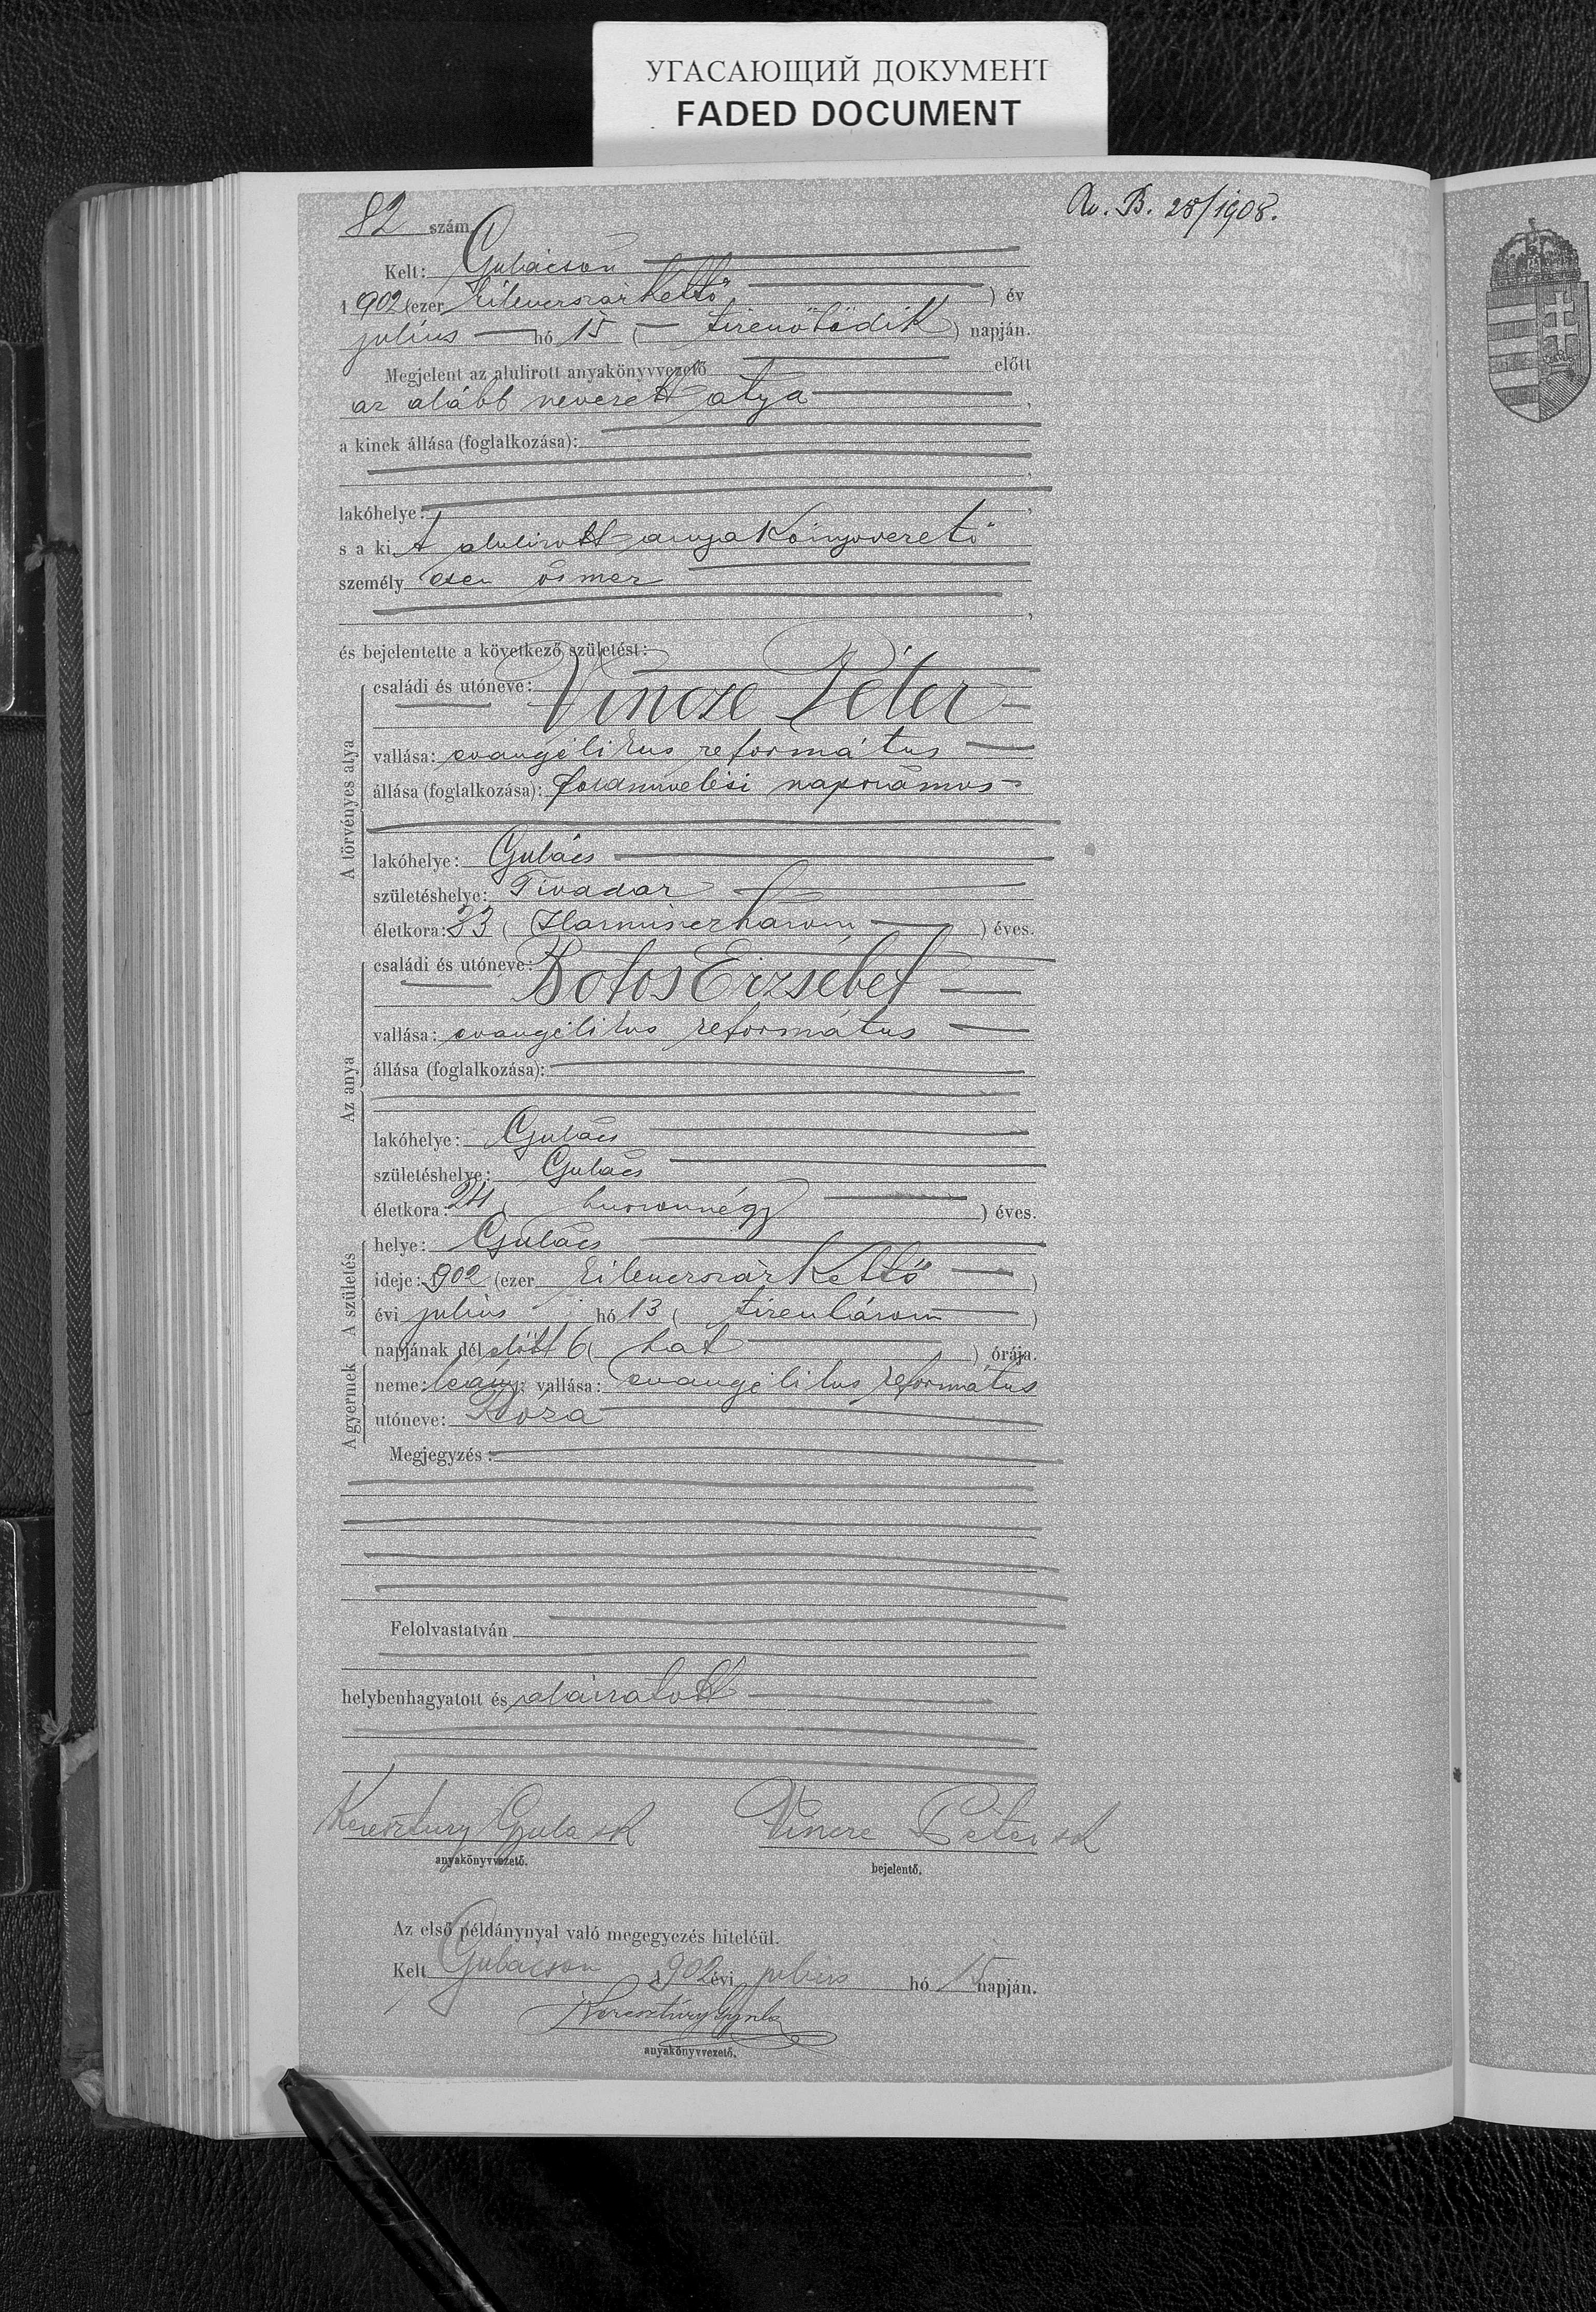 УГАСАЮЩИЙ ДОКУМЕНТ
FADED DOCUMENT
82 szám.
B. 28/1908.
Kelt: Gulácson
1902 (ezer kilenczszázkettő) év
julius hó 15 (tizenötödik) napján.
Megjelent az alulirott anyakönyvvezető előtt
az alább nevezett atya,
a kinek állása (foglalkozása):
lakóhelye:
s a ki t alulirott anyakönyvvezető
személyesen ösmer
és bejelentette a következő születést:
A törvényes atya
családi és utóneve: Vincze Péter
vallása: evangélikus református
állása (foglalkozása): földmivelési napszámos
lakóhelye: Gulács
születéshelye: Tivadar
életkora: 33 (Harminczhárom) éves.
Az anya
családi és utóneve: Botos Erzsébet
vallása: evangélikus református
állása (foglalkozása):
lakóhelye: Gulács
születéshelye: Gulács
életkora: 24 (huszonnégy) éves.
A születés
helye: Gulács
ideje: 1902 (ezer kilenczszázkettő)
évi julius hó 13 (tizenhárom)
napjának délelőtt 6 (hat) órája.
A gyermek
neme: leány; vallása: evangélikus református
utóneve: Róza
Megjegyzés:
Felolvastatván
helybenhagyatott és aláiratott
Keresztury Gyula sk Vincze Péter sk
anyakönyvvezető. bejelentő.
Az első példánynyal való megegyezés hiteléül.
Kelt Gulácson 1902 évi julius hó 15 napján.
Keresztury Gyula
anyakönyvvezető.